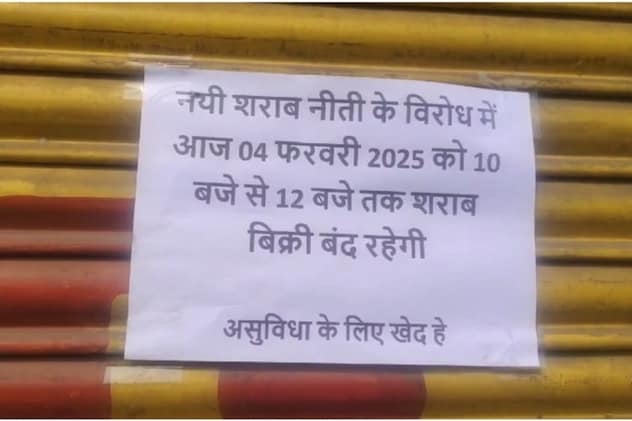 नयी शराब नीती के विरोध में
आज 04 फरवरी 2025 को 10
बजे से 12 बजे तक शराब
बिक्री बंद रहेगी
असुविधा के लिए खेद हे